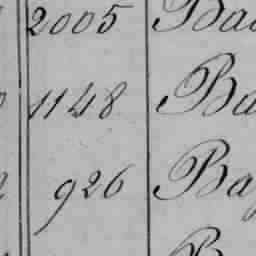 2005 Ba
1148 Ba
926 Ba